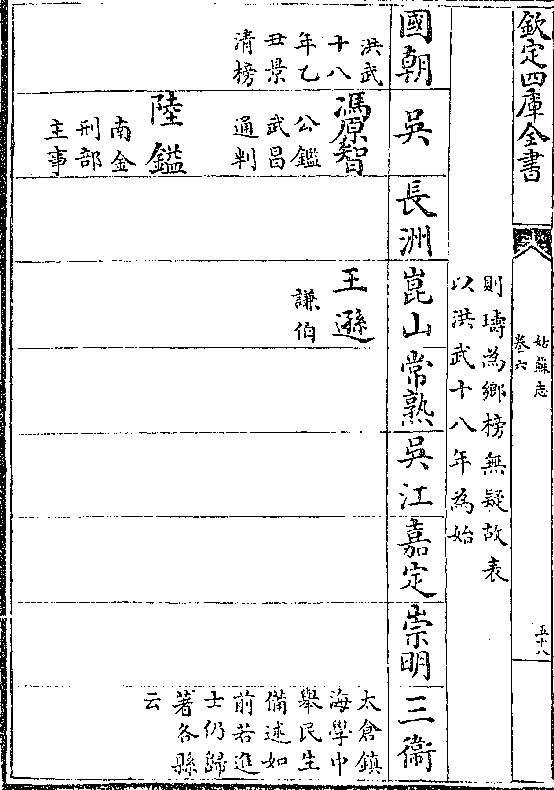 欽定四庫全書
姑蘇志
卷六
五十八
則璹為鄉榜無疑故表
以洪武十八年為始
國朝
吳
長洲
崑山
常熟
吳江
嘉定
崇明
三衞
洪武
十八
年乙
丑景
清榜
馮原智
公鑑
武昌
通判
陸鎰
南金
刑部
主事
王遜
謙伯
太倉鎮
海學中
舉民生
備述如
前若進
士仍歸
著各縣
云